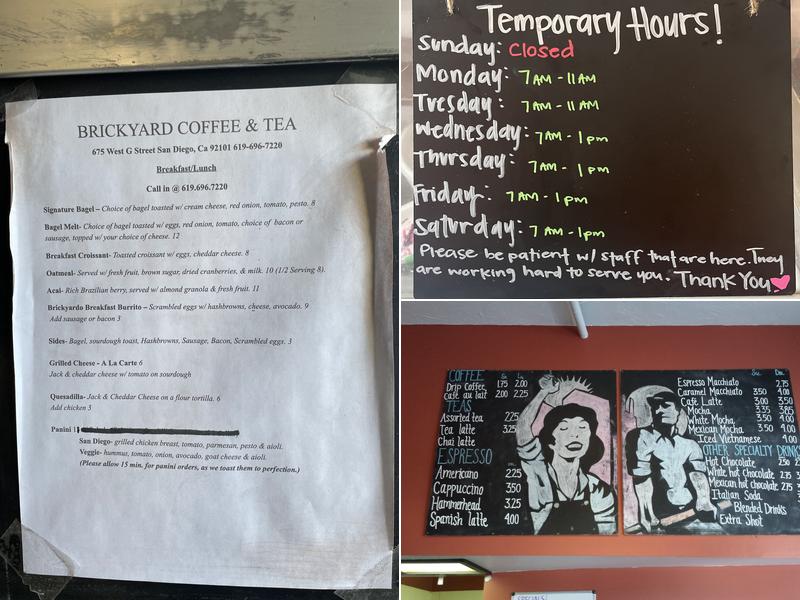 BRICKYARD COFFEE & TEA
675 West G Street San Diego, Ca 92101 619-696-7220
Breakfast/Lunch
Call in @ 619.696.7220
Signature Bagel – Choice of bagel toasted w/ cream cheese, red onion, tomato, pesto. 8
Bagel Melt- Choice of bagel toasted w/ eggs, red onion, tomato, choice of bacon or
sausage, topped w/ your choice of cheese. 12
Breakfast Croissant- Toasted croissant w/ eggs, cheddar cheese. 8
Oatmeal- Served w/ fresh fruit, brown sugar, dried cranberries, & milk. 10 (1/2 Serving 8).
Acai- Rich Brazilian berry, served w/ almond granola & fresh fruit. 11
Brickyardo Breakfast Burrito – Scrambled eggs w/ hashbrowns, cheese, avocado. 9
Add sausage or bacon 3
Sides- Bagel, sourdough toast, Hashbrowns, Sausage, Bacon, Scrambled eggs. 3
Grilled Cheese - A La Carte 6
Jack & cheddar cheese w/ tomato on sourdough
Quesadilla- Jack & Cheddar Cheese on a flour tortilla. 6
Add chicken 3
Panini
San Diego- grilled chicken breast, tomato, parmesan, pesto & aioli.
Veggie- hummus, tomato, onion, avocado, goat cheese & aioli.
(Please allow 15 min. for panini orders, as we toast them to perfection.)
Temporary Hours!
Sunday: Closed
Monday: 7AM - 11AM
Tuesday: 7AM - 11AM
Wednesday: 7AM - 1pm
Thursday: 7AM - 1pm
Friday: 7AM - 1pm
Saturday: 7AM - 1pm
Please be patient w/ staff that are here. They
are working hard to serve you. Thank You
COFFEE
Drip Coffee 1.75 2.00
Café au lait 2.00 2.25
TEAS
Assorted tea 2.25
Tea latte 3.25
Chai latte
ESPRESSO
Americano 2.25
Cappuccino 3.50
Hammerhead 3.25
Spanish latte 4.00
Espresso Macchiato 2.75
Caramel Macchiato 3.50 4.00
Cafe Latte 3.00 3.50
Mocha 3.35 3.85
White Mocha 3.50 4.00
Mexican Mocha 3.50 4.00
Iced Vietnamese 4.00
OTHER SPECIALTY DRINKS
Hot Chocolate 2.50
White hot chocolate 2.75
Mexican hot chocolate 2.75
Italian Soda
Blended Drinks
Extra Shot
SPECIALS!